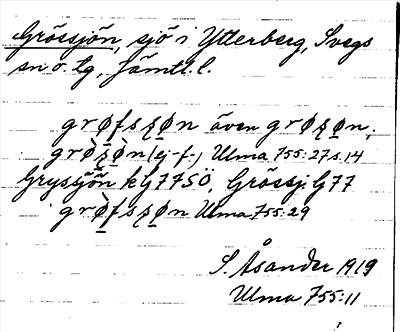 Grössjön, sjö i Ytterberg, Svegs
sn o. tg, Jämtl. l.
grøfsʂøn även grøʂøn,
grø̀ʂø̀n (ej -f-) Ulma 755:27 s. 14
Grysjön kG77SÖ, Grössj. G77
grø̀fsʂøn Ulma 755:29
S. Åsander 1919
Ulma 755:11